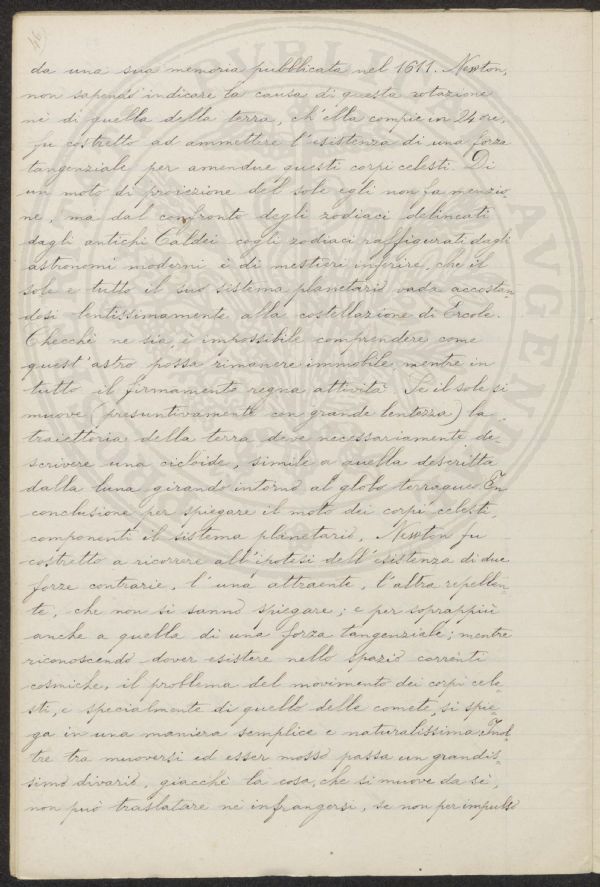 46
da una sua memoria pubblicata nel 1611. Newton,
non sapendo indicare la causa di questa rotazione
nè di quella della terra, ch'ella compie in 24 ore,
fu costretto ad ammettere l'esistenza di una forza
tangenziale per amendue questi corpi celesti. Di
un moto di proiezione del sole egli non fa menzio-
ne, ma dal confronto degli zodiaci delineati
dagli antichi Caldei cogli zodiaci raffigurati dagli
astronomi moderni è di mestieri inferire, che il
sole e tutto il suo sistema planetario vada accostan-
desi lentissimamente alla costellazione di Ercole.
Checchè ne sia, è impossibile comprendere come
quest'astro possa rimanere immobile mentre in
tutto il firmamento regna attività. Se il sole si
muove (presuntivamente con grande lentezza) la
traiettoria della terra deve necessariamente de-
scrivere una cicloide, simile a quella descritta
dalla luna girando intorno al globo terraqueo. In
conclusione per spiegare il moto dei corpi celesti,
componenti il sistema planetario, Newton fu
costretto a ricorrere all'ipotesi dell'esistenza di due
forze contrarie, l'una attraente, l'altra repellen-
te, che non si sanno spiegare; e per soprappiù
anche a quella di una forza tangenziale; mentre
riconoscendo dover esistere nello spazio correnti
cosmiche, il problema del movimento dei corpi cele-
sti, e specialmente di quello delle comete, si spie-
ga in una maniera semplice e naturalissima. Inol-
tre tra muoversi ed esser mosso passa un grandis-
simo divario, giacchè la cosa, che si muove da sè,
non può traslatare nè infrangersi, se non per impulso